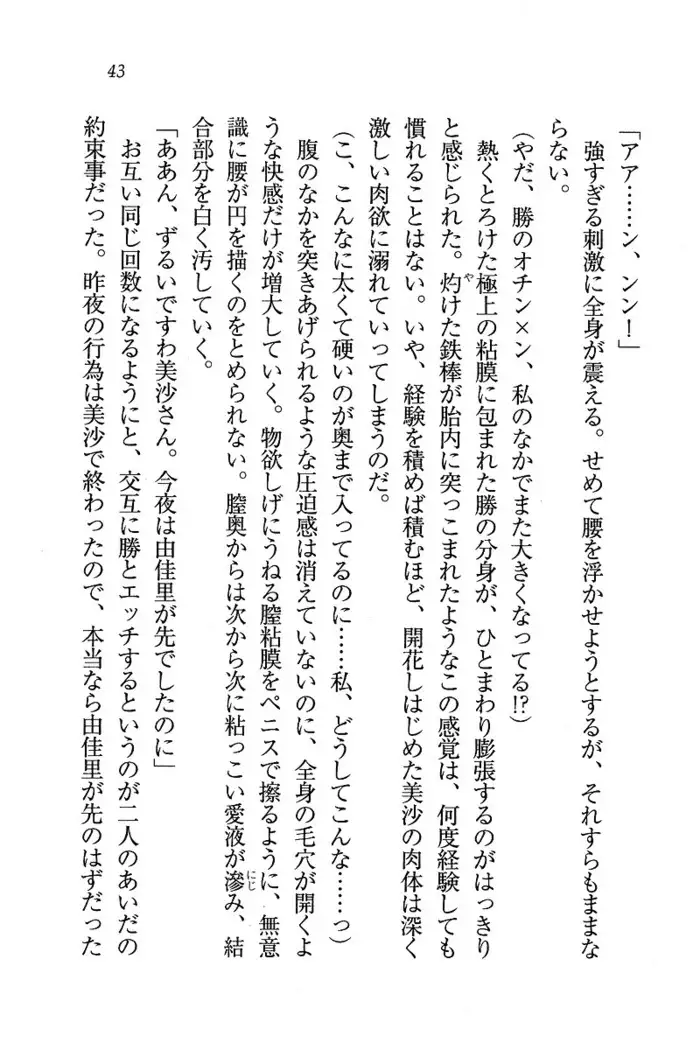 43
「アア……ン、ンン！」
強すぎる刺激に全身が震える。せめて腰を浮かせようとするが、それすらもままな
らない。
（やだ、勝のオチン×ン、私のなかでまた大きくなってる!?）
熱くとろけた極上の粘膜に包まれた勝の分身が、ひとまわり膨張するのがはっきり
と感じられた。灼けた鉄棒が胎内に突っこまれたようなこの感覚は、何度経験しても
慣れることはない。いや、経験を積めば積むほど、開花しはじめた美沙の肉体は深く
激しい肉欲に溺れていってしまうのだ。
（こ、こんなに太くて硬いのが奥まで入ってるのに……私、どうしてこんな……っ）
腹のなかを突きあげられるような圧迫感は消えていないのに、全身の毛穴が開くよ
うな快感だけが増大していく。物欲しげにうねる膣粘膜をペニスで擦るように、無意
識に腰が円を描くのをとめられない。膣奥からは次から次に粘っこい愛液が滲み、結
合部分を白く汚していく。
「ああん、ずるいですわ美沙さん。今夜は由佳里が先でしたのに」
お互い同じ回数になるようにと、交互に勝とエッチするというのが二人のあいだの
約束事だった。昨夜の行為は美沙で終わったので、本当なら由佳里が先のはずだった